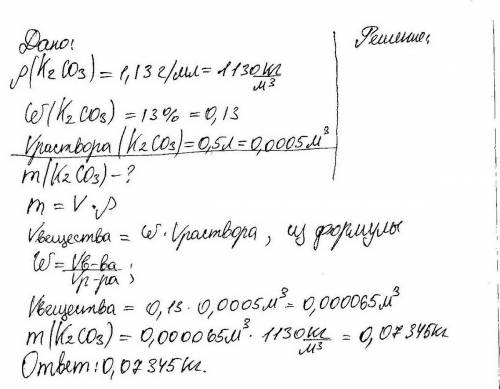 Дано:
Решение:
ρ(K2CO3) = 1,13 г/мл = 1130 кг/м³
ω(K2CO3) = 13% = 0,13
Vраствора (K2CO3) = 0,5л = 0,0005 м³
m(K2CO3) - ?
m = V · ρ
Vвещества = ω · Vраствора, из формулы
ω = Vв-ва/Vр-ра;
Vвещества = 0,13 · 0,0005м³ = 0,000065м³
m(K2CO3) = 0,000065м³ · 1130 кг/м³ = 0,07345кг
Ответ: 0,07345кг.